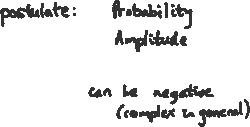 postulate: Probability
Amplitude
can be negative
(complex in general)